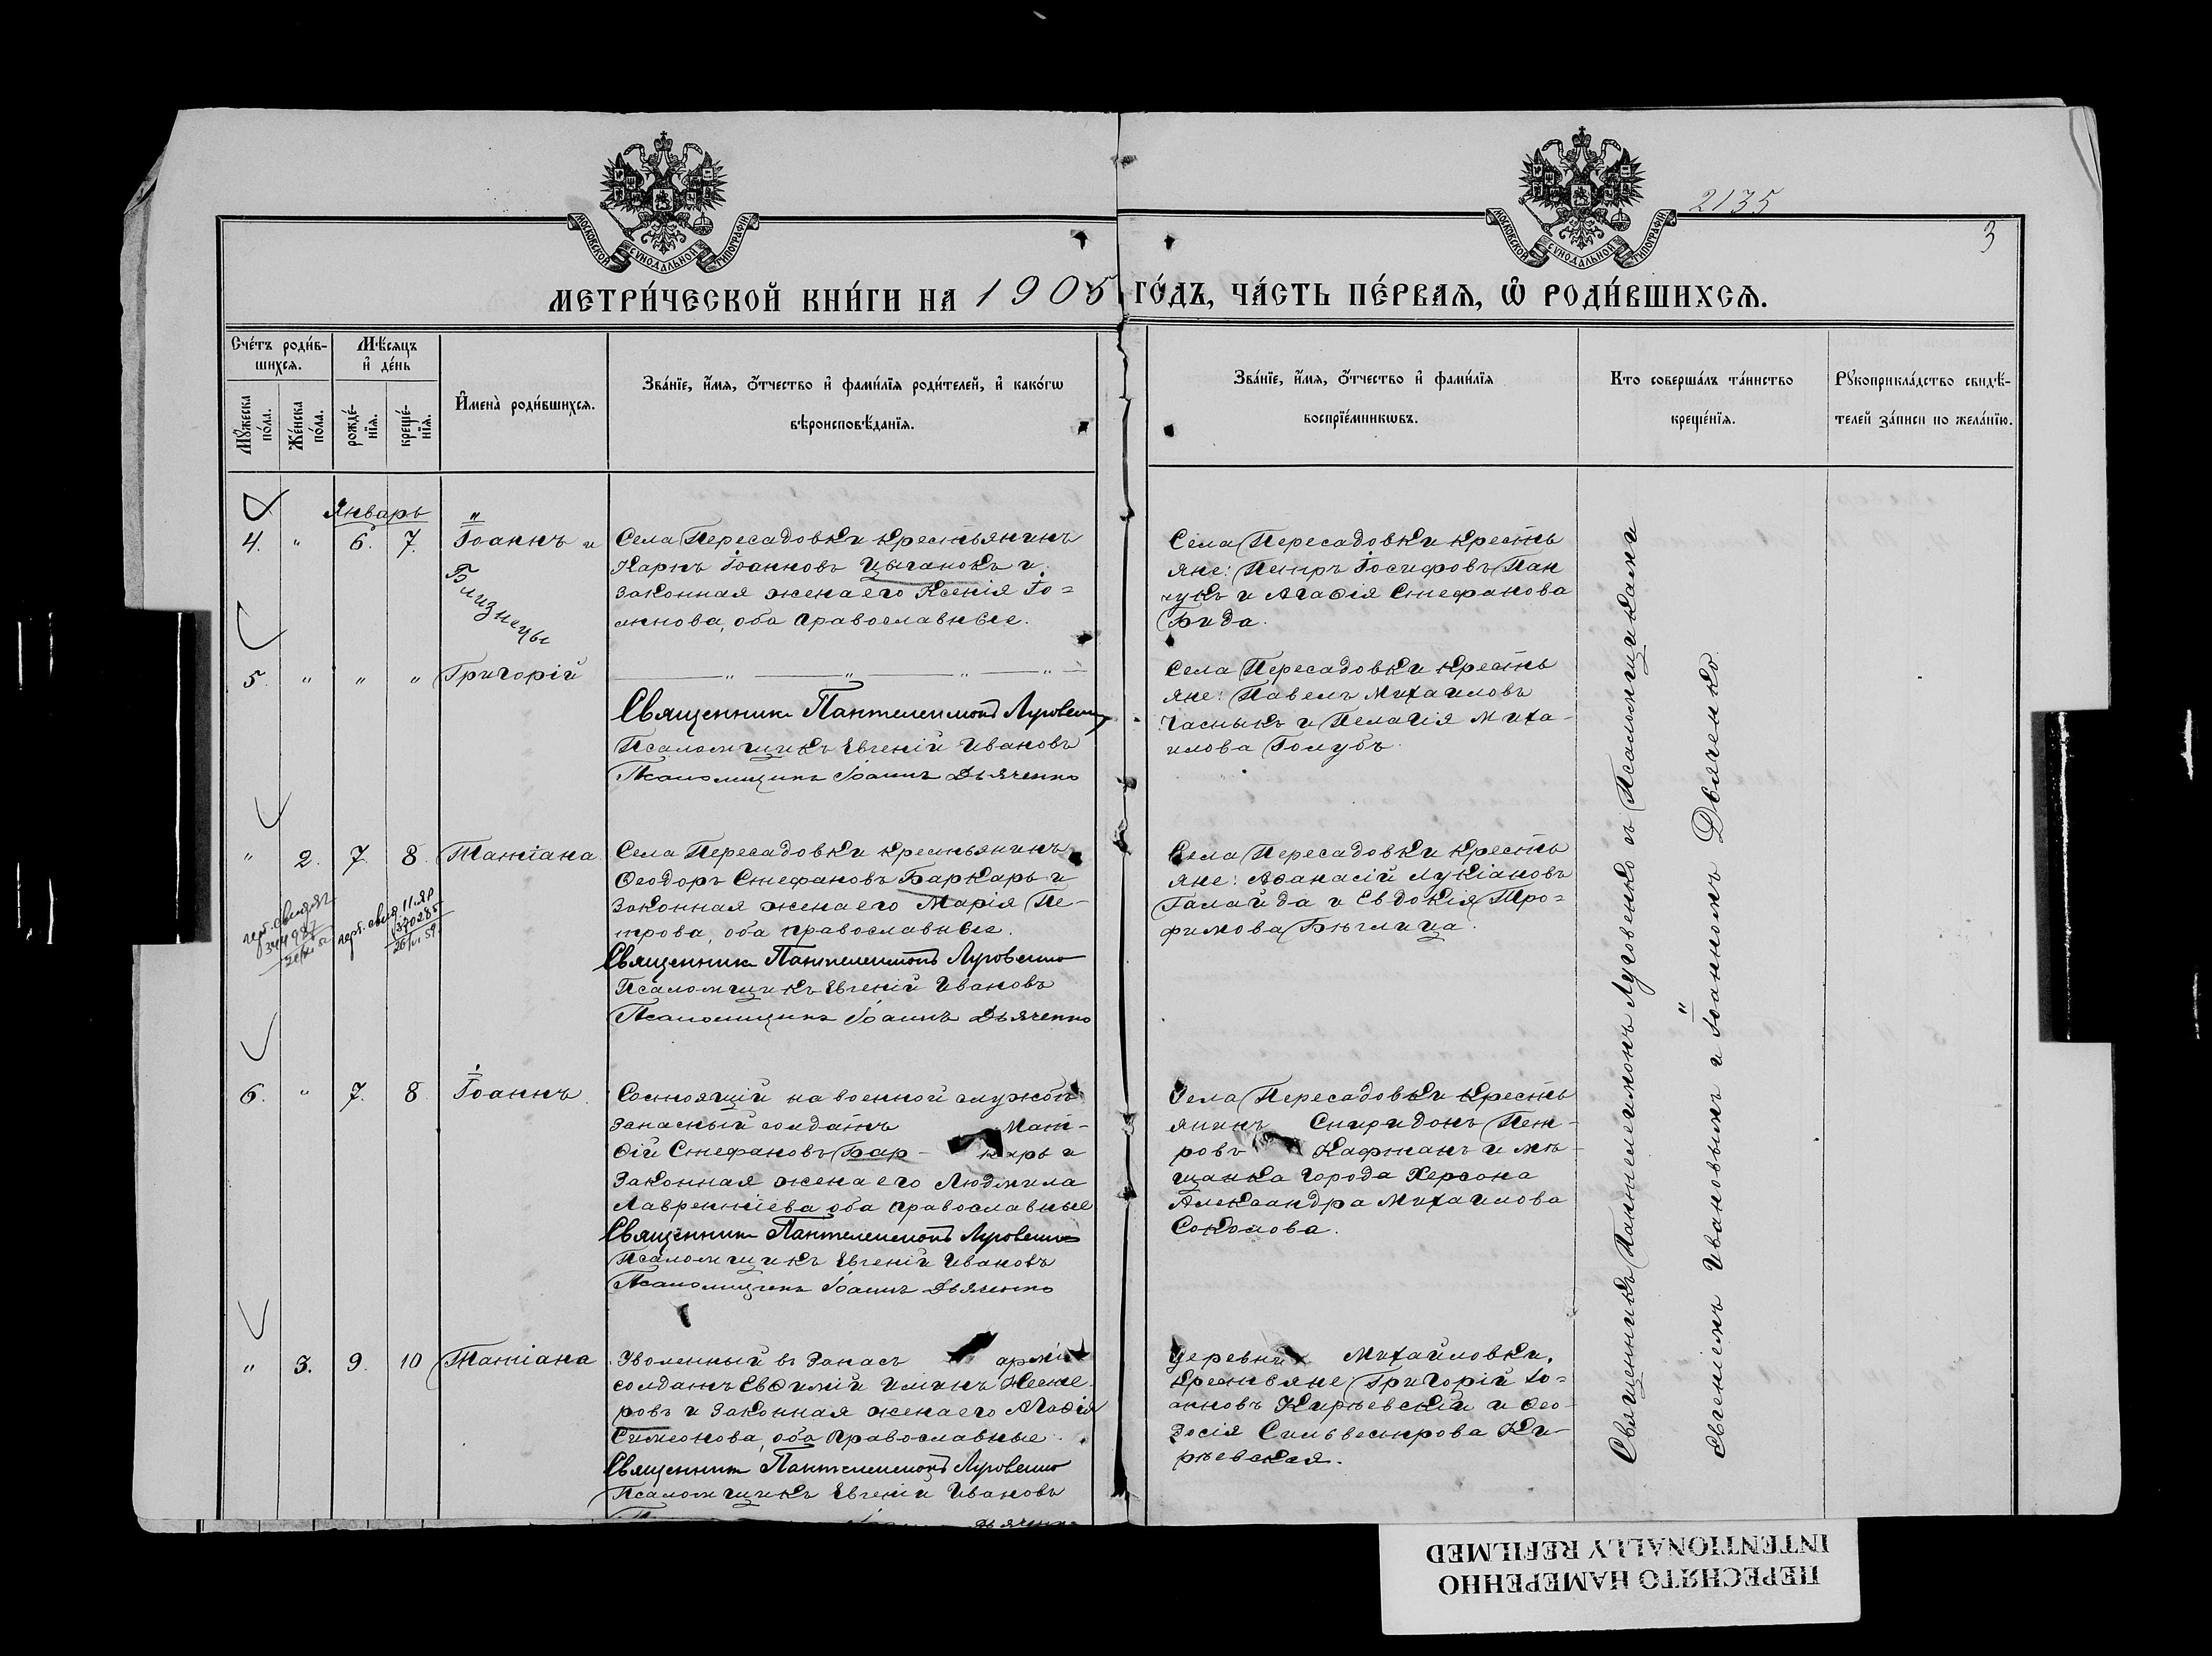 МОСКОВСКОЙ СѴНОДАЛЬНОЙ ТИПОГРАФІИ
МОСКОВСКОЙ СѴНОДАЛЬНОЙ ТИПОГРАФІИ
2135
3
МЕТРИ́ЧЕСКОЙ КНИ́ГИ НА 1905 ГО́ДЪ, ЧА́СТЬ ПЕ́РВАЯ, Ѽ РОДИ́ВШИХСЯ.
Сче́тъ роди́в-
шихся.
Мѣ́сяцъ
и҆ де́нь
Мꙋ́жеска
по́ла.
Же́нска
по́ла.
рожде́-
нїя.
креще́-
нїя.
И҆мена̀ роди́вшихся.
Зва́нїе, и҆́мя, ѻ҆́тчество и҆ фами́лїя роди́телей, и҆ како́гѡ
вѣроисповѣ́данїя.
Зва́нїе, и҆́мя, ѻ҆́тчество и҆ фами́лїя
воспрїе́мникѡвъ.
Кто соверша́лъ та́инство
креще́нїя.
Рꙋкоприкла́дство свидѣ́-
телей за́писи по жела́нїю.
Январь
4. " 6. 7. Іоаннъ и
Близнецы
Села Пересадовки крестьянинъ
Карпъ Іоанновъ Цыганокъ и
законная жена его Ксенія Іо=
аннова, оба православные.
Села Пересадовки крестья
яне: Петръ Іосифовъ Пан
чукъ и Агафія Стефанова
Бида.
5 " " " Григорій
" " " "
Священникъ Пантелеимонъ Луговенко
Псаломщикъ Евгеній Ивановъ
Псаломщикъ Іоаннъ Дьяченко
Села Пересадовки кресть
яне: Павелъ Михаиловъ
Часныкъ и Пелагія Миха-
илова Голубъ.
" 2. 7. 8. Татіана
Села Пересадовки крестьянинъ
Ѳеодоръ Стефановъ Баркарь и
законная жена его Марія Пе-
трова, оба православные.
Священникъ Пантелеимонъ Луговенко
Псаломщикъ Евгеній Ивановъ
Псаломщикъ Іоаннъ Дьяченко
Села Пересадовки кресть
яне: Аѳанасій Лукіановъ
Галайда и Евдокія Тро=
фимова Бѣглица.
6. " 7. 8 Іоаннъ
Состоящій на военной службѣ
запасный солдатъ Мат-
ѳій Стефановъ Бар- карь и
законная жена его Людмила
Лаврентіева оба православные
Священникъ Пантелеимонъ Луговенко
Псаломщикъ Евгеній Ивановъ
Псаломщикъ Іоаннъ Дьяченко
Села Пересадовки кресть
янинъ Спиридонъ Пет-
ровъ Кафтанъ и мѣ-
щанка города Херсона
Александра Михаилова
Соколова.
" 3. 9. 10 Татіана
Уволенный въ запасъ арміи
солдатъ Евѳимій Илiинъ Несте-
ровъ и законная жена его Агафія
Симеонова, оба православные.
Священникъ Пантелеимонъ Луговенко
Псаломщикъ Евгеній Ивановъ
Деревни Михайловки,
крестьяне Григорій Іо=
анновъ Кирѣевскій и Ѳео-
досія Сильвестрова Ки-
рѣевская.
Священникъ Пантелеимонъ Луговенко съ Псаломщиками
Евгеніемъ Ивановымъ и Іоанномъ Дьяченко.
ПЕРЕСНЯТО НАМЕРЕННО
INTENTIONALLY REFILMED